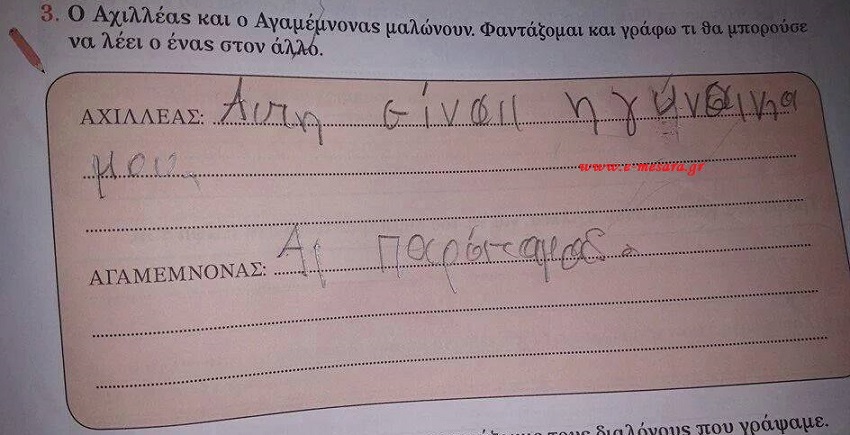 3. Ο Αχιλλέας και ο Αγαμέμνονας μαλώνουν. Φαντάζομαι και γράφω τι θα μπορούσε
να λέει ο ένας στον άλλο.
ΑΧΙΛΛΕΑΣ: Αυτη είναι η γυναίκα
μου.
www.e-mesara.gr
ΑΓΑΜΕΜΝΟΝΑΣ: Αι
τους διαλόγους που γράψαμε.